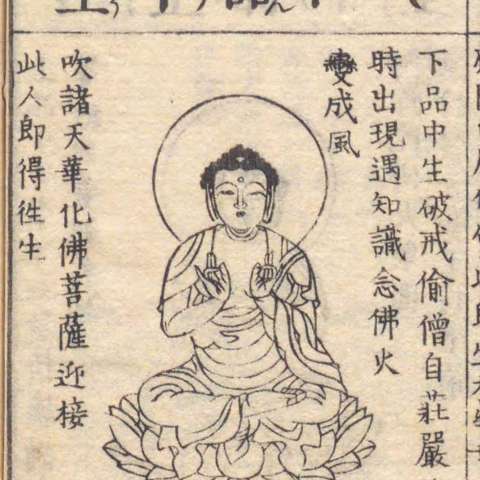 下品中生破戒偷僧自莊嚴
時出現遇知識念佛火
變成風
吹諸天華化佛菩薩迎接
此人即得徃生